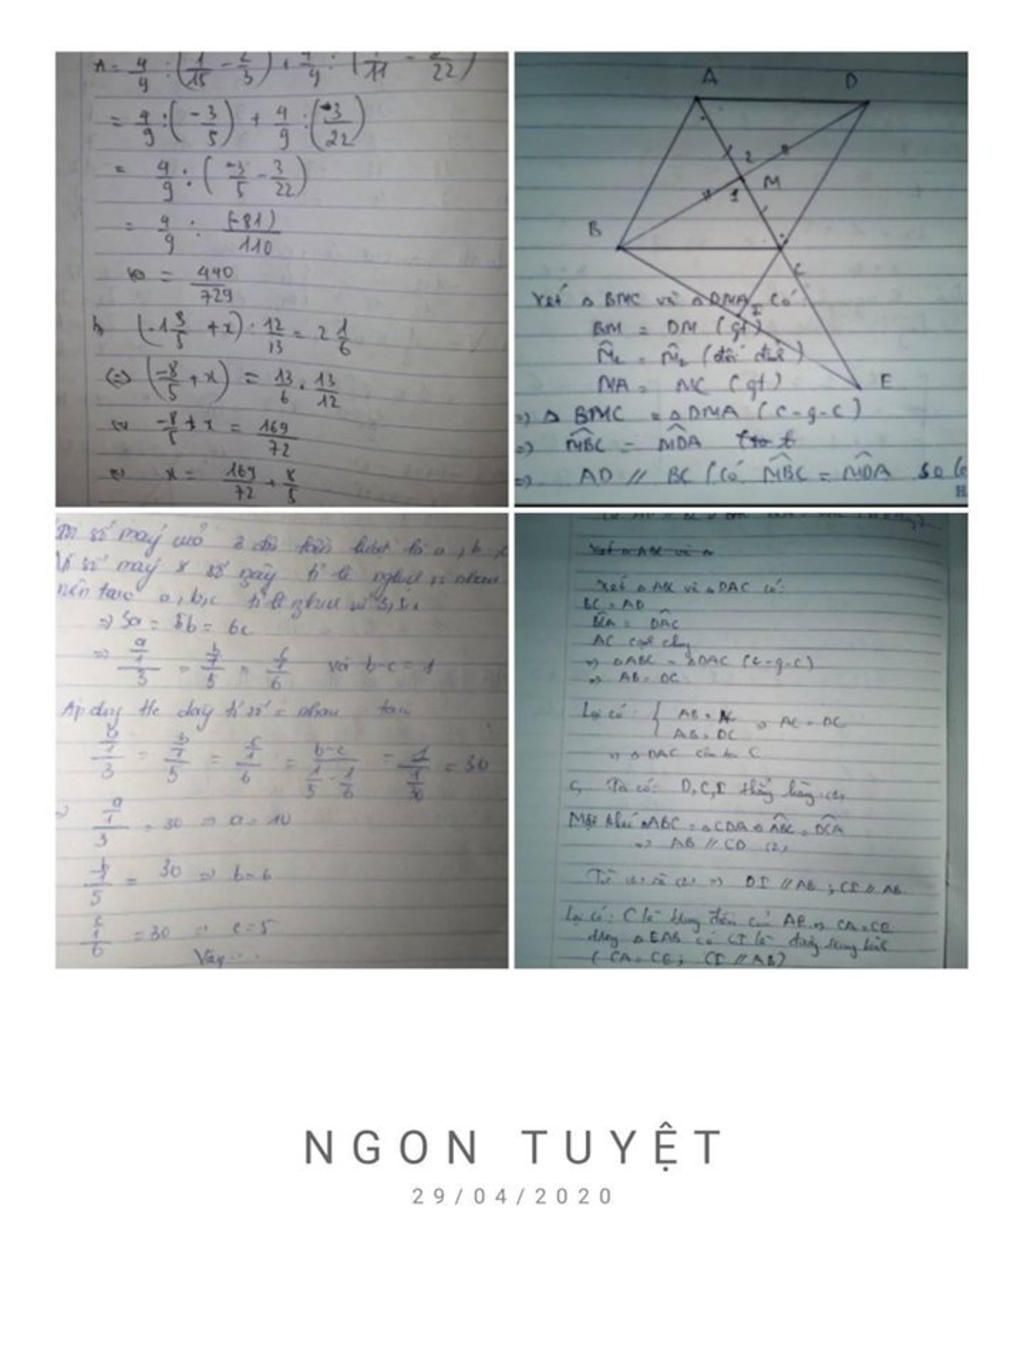 = 4/9 : (-3/5) + 4/9 : (-3/22)
= 4/9 : (-3/5 - 3/22)
= 4/9 : (-81)/110
= 440/729
b, (-1 3/5 + x) : 12/13 = 2 1/6
<=> (-8/5 + x) = 13/6 . 13/12
-8/5 + x = 169/72
x = 169/72 + 8/5
A D
2
1 M
B
C
I
E
Xét Δ BMC và Δ DMA có
BM = DM (gt)
M̂1 = M̂2 (đối đỉnh)
MA = MC (gt)
=> Δ BMC = Δ DMA (c-g-c)
=> MBC = MDA
=> AD // BC (có MBC = MDA so le
số máy 3 đội lần lượt là a, b, c
số máy x số ngày tỉ lệ nghịch nhau
nên a, b, c tỉ lệ
=> 3a = 5b = 6c
=> a/(1/3) = b/(1/5) = c/(1/6) và b-c = 1
Áp dụng t/c dãy tỉ số = nhau
= b/(1/5) = c/(1/6) = (b-c)/(1/5 - 1/6) = 1/(1/30) = 30
=> a/(1/3) = 30 => a = 10
b/(1/5) = 30 => b = 6
c/(1/6) = 30 => c = 5
Vậy...
Xét Δ ABC và Δ DAC có:
BC = AD
BCA = DAC
AC cạnh chung
=> Δ ABC = Δ DAC (c-g-c)
=> AB = DC
Lại có: { AB = AC => AC = DC
AB = DC
=> Δ DAC cân tại C
c, Ta có: D, C, I thẳng hàng (1)
Mặt khác Δ ABC = Δ CDA => ABC = DCA
=> AB // CD (2)
Từ (1) và (2) => DI // AB ; CI // AB
Lại có: C là trung điểm của AE => CA = CE
trong Δ EAB có CI là đường trung bình
(CA = CE ; CI // AB)
NGON TUYỆT
29/04/2020